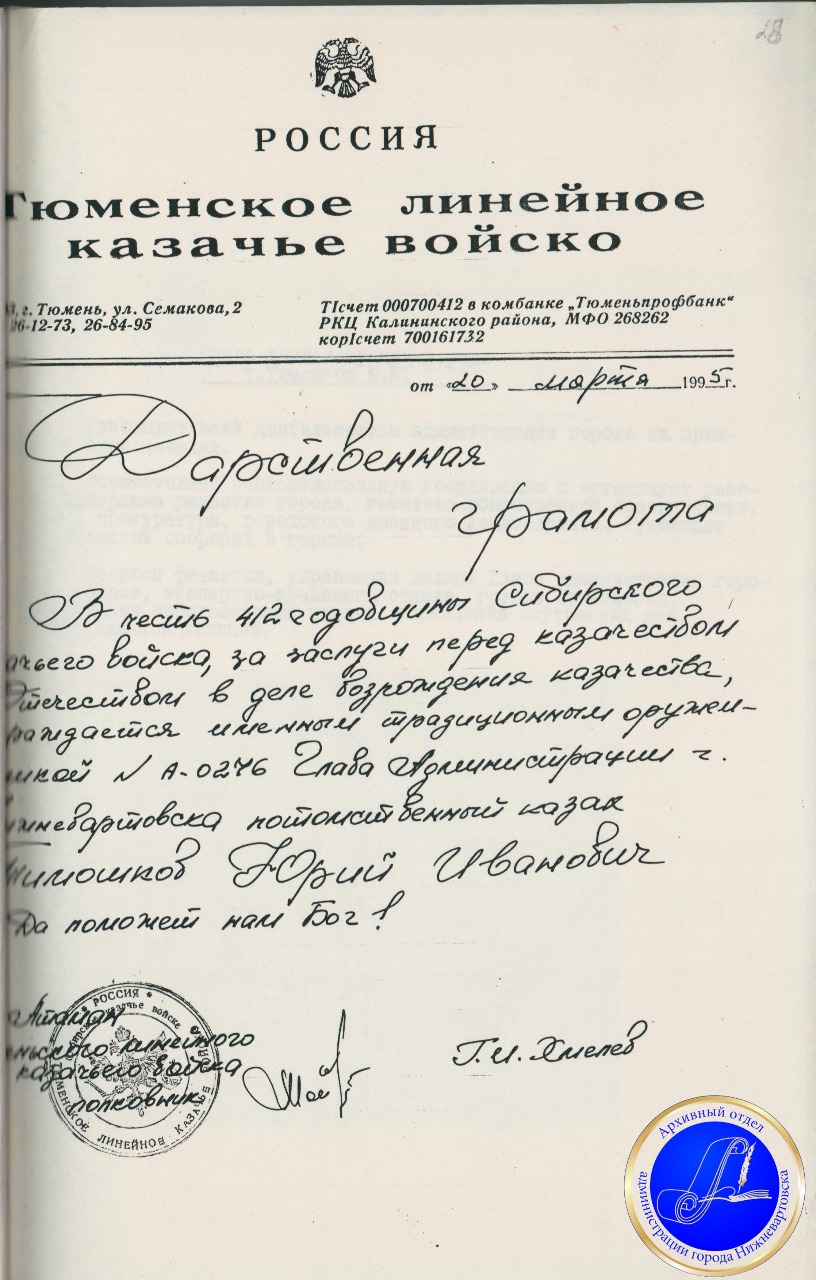 28
РОССИЯ
Тюменское линейное
казачье войско
г. Тюмень, ул. Семакова, 2
26-12-73, 26-84-95
ТIсчет 000700412 в комбанке „Тюменьпрофбанк“
РКЦ Калининского района, МФО 268262
корIсчет 700161732
от «20» марта 1995 г.
Дарственная
грамота
В честь 412 годовщины Сибирского
ачьего войска, за заслуги перед казачеством
Отечеством в деле возрождения казачества,
раждается именным традиционным оружем-
шкой N А-0276 Глава Администрации г.
ижневартовска потомственный казак
Тимошков Юрий Иванович
Да поможет нам Бог!
Атаман
енского линейного
казачьего войска
полковник
Г.И. Хмелев
* РОССИЯ *
ТЮМЕНСКОЕ ЛИНЕЙНОЕ КАЗАЧЬЕ
Архивный отдел
администрации города Нижневартовска